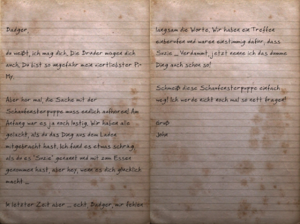 Badger,
du weißt, ich mag dich. Die Brüder mögen dich
auch. Du bist so ungefähr mein wertlichster Pi-
My.
Aber hör mal, die Sache mit der
Schaufensterpuppe muss endlich aufhören! Am
Anfang war es ja noch lustig. Wir haben alle
gelacht, als du das Ding aus dem Laden
mitgebracht hast. Ich fand es etwas schräg,
als du es 'Susie' genannt und mit zum Essen
genommen hast, aber hey, wenn es dich glücklich
macht ...
In letzter Zeit aber ... echt, Badger, mir fehlen
langsam die Worte. Wir haben ein Treffen
einberufen und waren einstimmig dafür, dass
Susie ... Verdammt, jetzt nenne ich das dumme
Ding auch schon so!
Schmeiß diese Schaufensterpuppe einfach
weg! Ich werde nicht noch mal so nett fragen!
Gruß
John